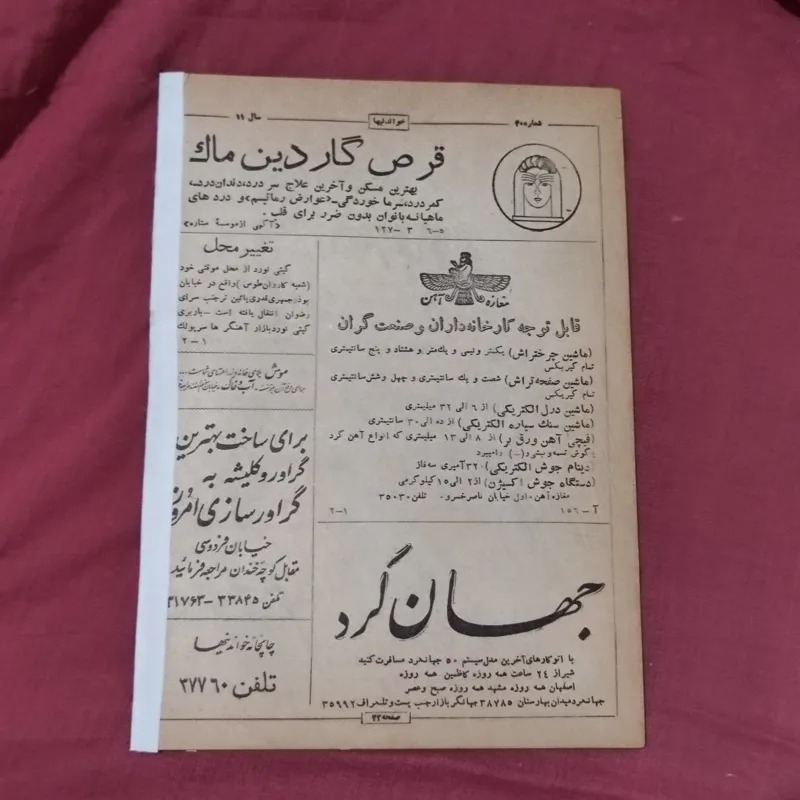 شماره ۴۰
خواندنیها
سال ۱۱
قرص گاردین ماك
بهترین مسکن و آخرین علاج سردرد، دندان درد،
کمردرد، سرما خوردگی_«عوارض رماتیسم»و درد های
ماهیانه بانوان بدون ضرر برای قلب .
«آگهی از موسسهٔ ستاره»
۵-۶ ۳ -۱۲۷
مغازه آهن
قابل توجه کارخانه داران و صنعت گران
(ماشین چرختراش) یکمتر و نیمی و یك متر و هشتاد و پنج سانتیمتری
تمام گیربکس
(ماشین صفحه تراش) شصت و یك سانتیمتری و چهل و شش سانتیمتری
تمام گیربکس
(ماشین درل الکتریکی) از ۶ الی ۳۲ میلیمتری
(ماشین سنك سیاره الکتریکی) از ده الی ۳۰ سانتیمتری
(قیچی آهن ورق بر) از ۸ الی ۱۳ میلیمتری که انواع آهن گرد
(دینام جوش الکتریکی) ۳۲۰ آمپری سه فاز
(دستگاه جوش اکسیژن) از ۲ الی ۱۵ کیلوگرمی
مغازه آهن-اول خیابان ناصرخسرو- تلفن ۳۵۰۳۰
آ-۱۵۶
۲-۱
جهان گرد
با اتوکارهای آخرین مدل سیستم ۵۰ جهانگرد مسافرت کنید
شیراز ۲۴ ساعت همه روزه کاظمین همه روزه
اصفهان همه روزه مشهد همه روزه صبح و عصر
جهانگرد میدان بهارستان ۳۸۷۸۵ جهانگر بازار جنب پست و تلگراف ۳۵۹۹۲
تغییر محل
گیتی نورد از محل موقتی خود
(شعبه کاروان طوس) واقع در خیابان
بوذرجمهری قدری پائین تر جنب سرای
رضوان انتقال یافته است - باربری
گیتی نورد بازار آهنگر ها سر پولك
۲-۱
موش بلای خانه و
برای ساخت بهترین
گراور و کلیشه به
گراورسازی امروز
خیابان فردوسی
مقابل کوچه خندان مراجعه فرمائید
تلفن ۳۳۸۴۵-۳۱۷۶۳
چاپخانه خواندنیها
تلفن ۳۷۷۶۰
صفحه ۲۳